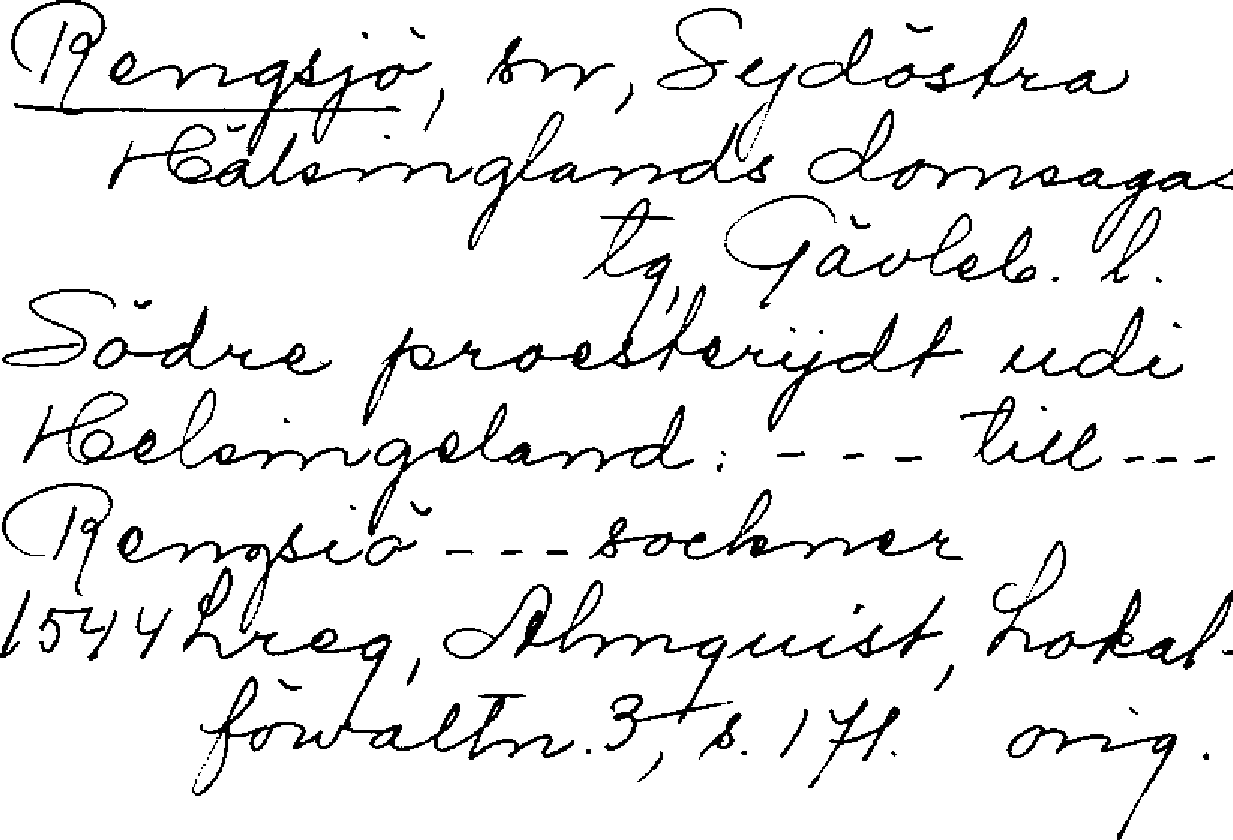 Rengsjö, sn, Sydöstra
Hälsinglands domsagas
tg, Gävleb. l.
Södre proesterijdt udi
Helsingeland: --- till ---
Rengsiö --- sockner
1544 Lreg, Almquist, Lokal-
förvaltn. 3, s. 171. orig.